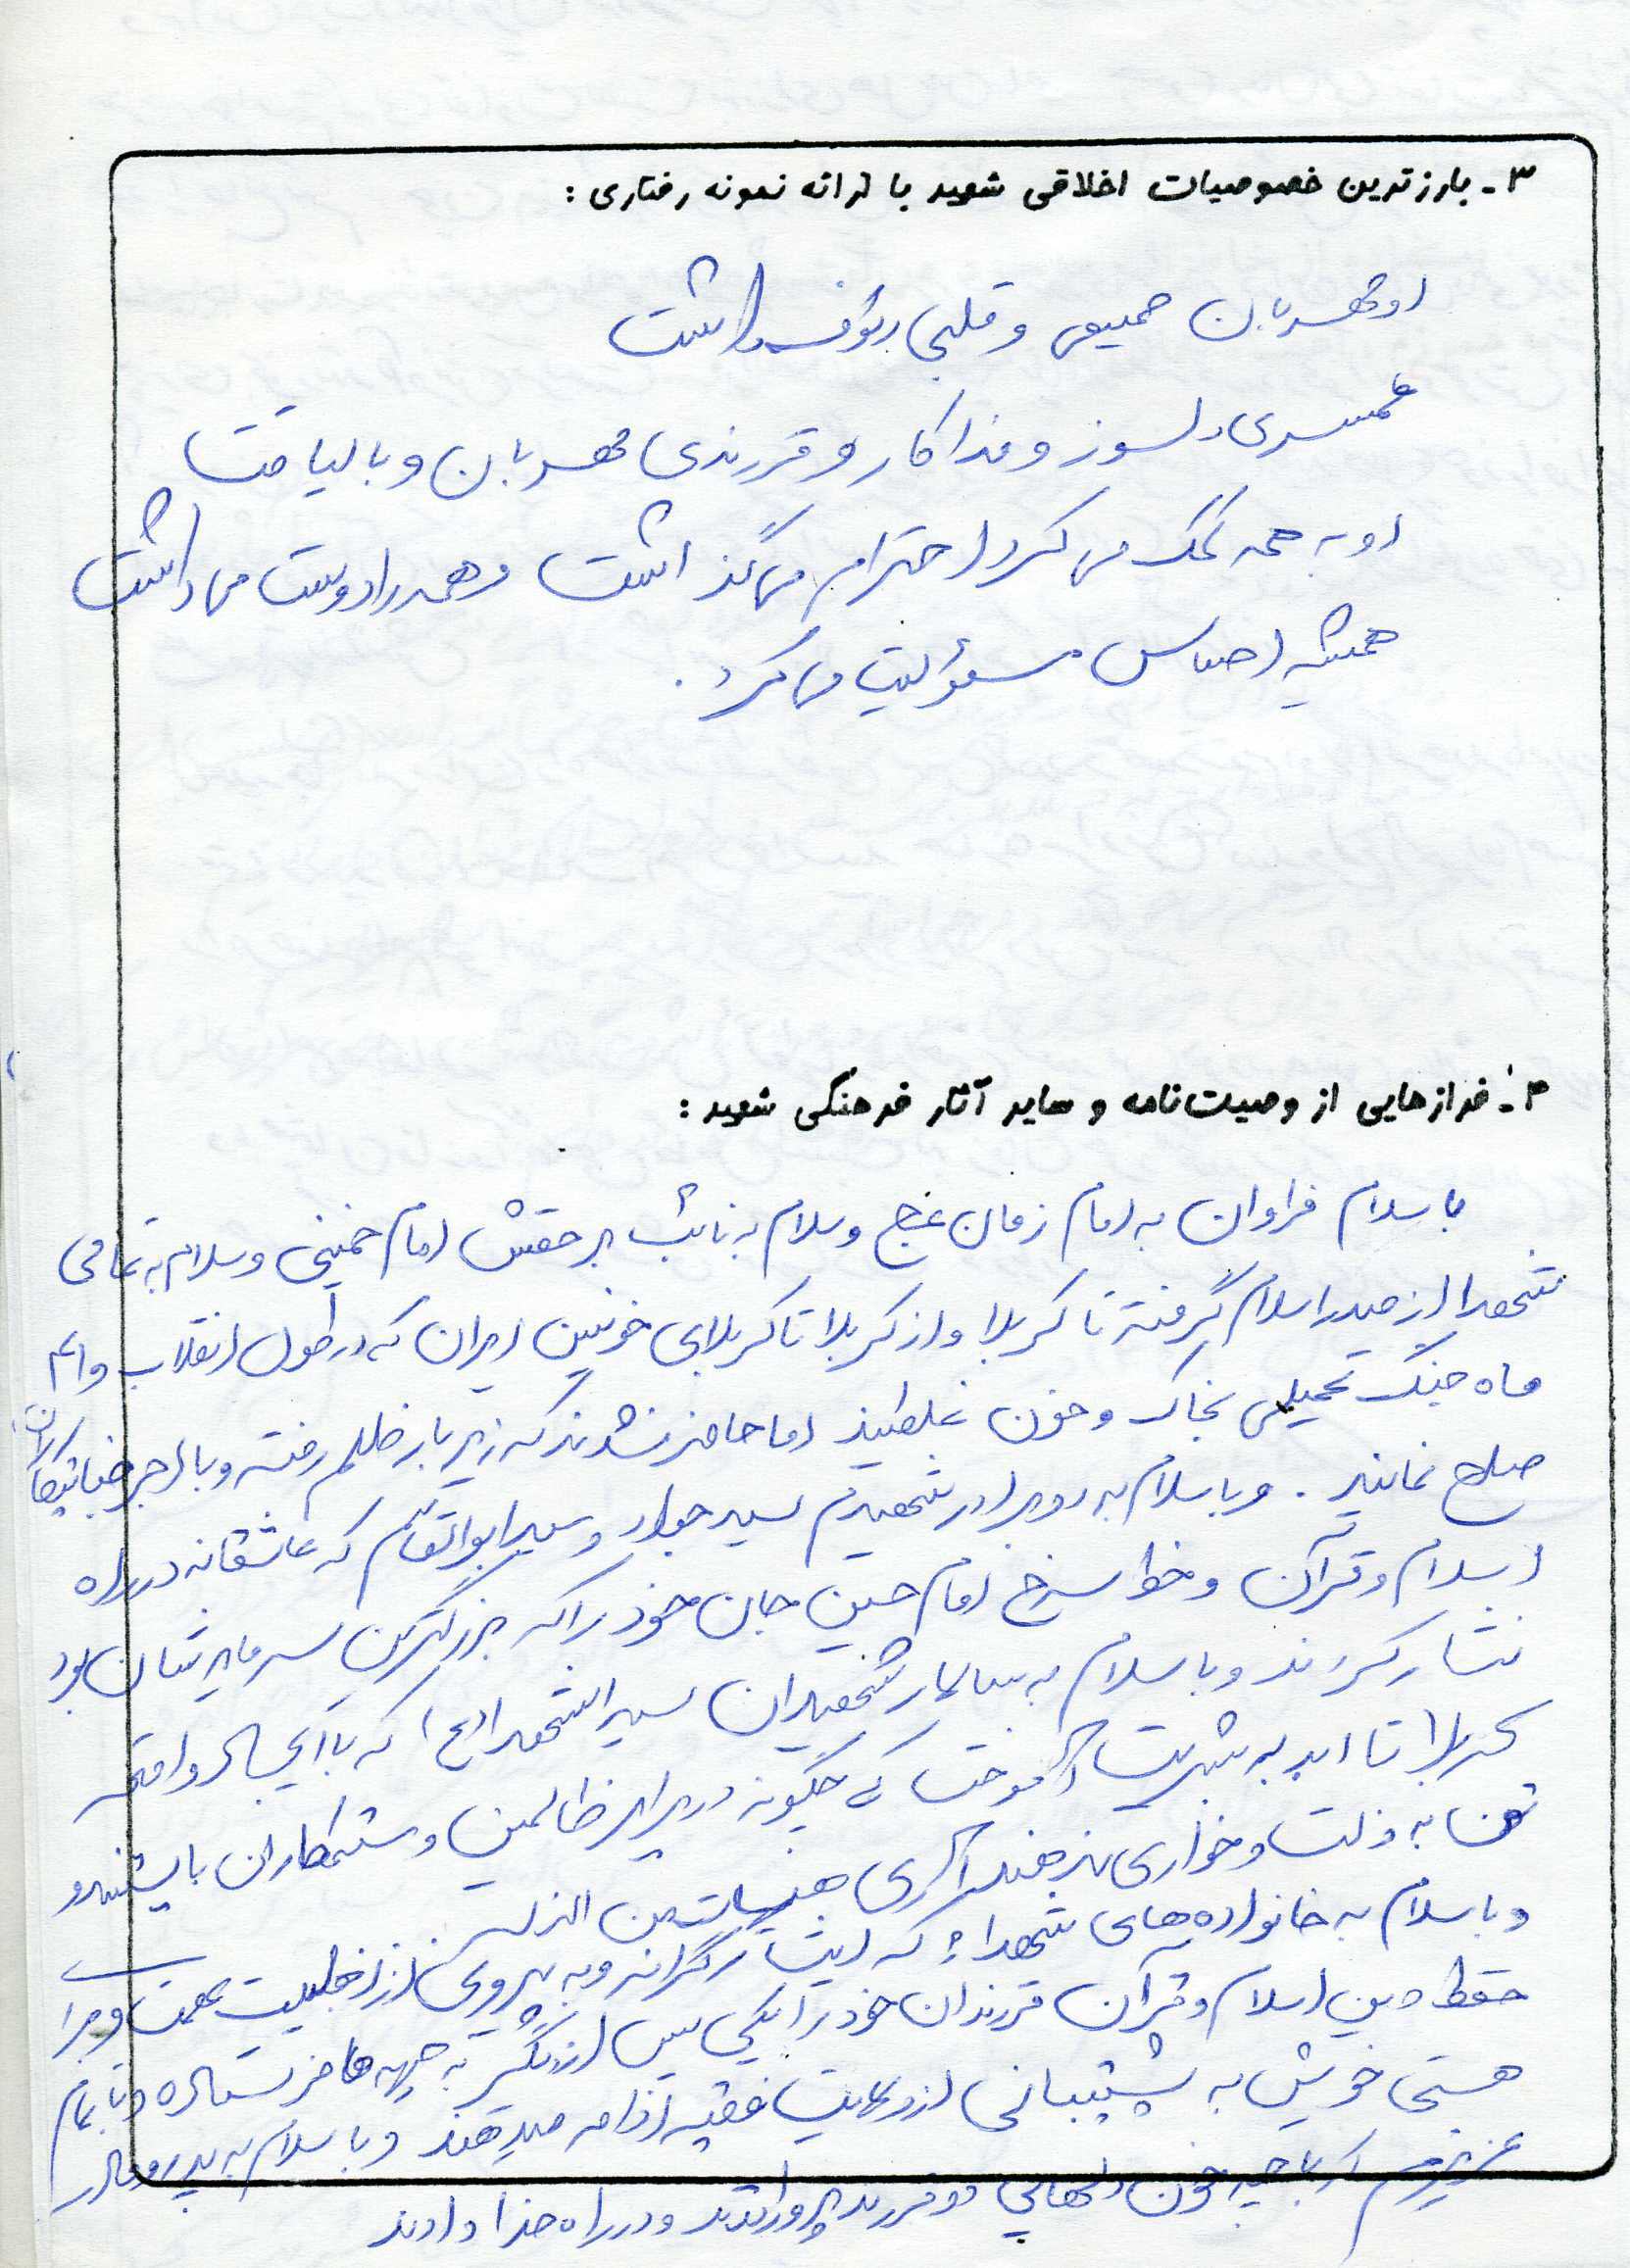 ۳- بارزترین خصوصیات اخلاقی شهید با ارائه نمونه رفتاری:
او مهربان صمیمی و قلبی رئوف داشت
همسری دلسوز و فداکار و فرزندی مهربان و با لیاقت
او به همه کمک می کرد احترام می گذاشت و همه را دوست می داشت
همیشه احساس مسؤلیت می کرد.
۴- فرازهایی از وصیت‌نامه و سایر آثار فرهنگی شهید:
با سلام فراوان به امام زمان عج و سلام به نائب بر حقش امام خمینی و سلام به تمامی
شهدا از صدر اسلام گرفته تا کربلا و از کربلا تا کربلای خونین ایران که در طول انقلاب و
ماه جنگ تحمیلی بخاک و خون غلطیند اما حاضر نشدند که زیر بار ظلم رفته و با
صلح نمایند. و با سلام به دو برادر شهیدم سید جواد و سید ابوالقاسم که عاشقانه در راه
اسلام و قرآن و خط سرخ امام حسین جان خود را که بزرگترین سرمایه شان بود
نثار کردند و با سلام به سالار شهیدان سید الشهدا (ع) که با ایجاد واقعه
کربلا تا ابد به بشریت آموخت که چگونه در برابر ظالمین و ستمکاران بایستند و
تن به ذلت و خواری ندهند آری هیهات من الذله
و با سلام به خانواده های شهدا که ایثارگرانه و به پیروی از اهلبیت عصمت و برای
حفظ دین اسلام و قرآن فرزندان خود را یکی پس از دیگر به جبهه ها فرستاده و با تمام
هستی خویش به پشتیبانی از ولایت فقیه ادامه میدهند و با سلام به پدر و مادر
عزیزم که با چه خون دلهایی دو فرزند پروراندند و در راه خدا دادند